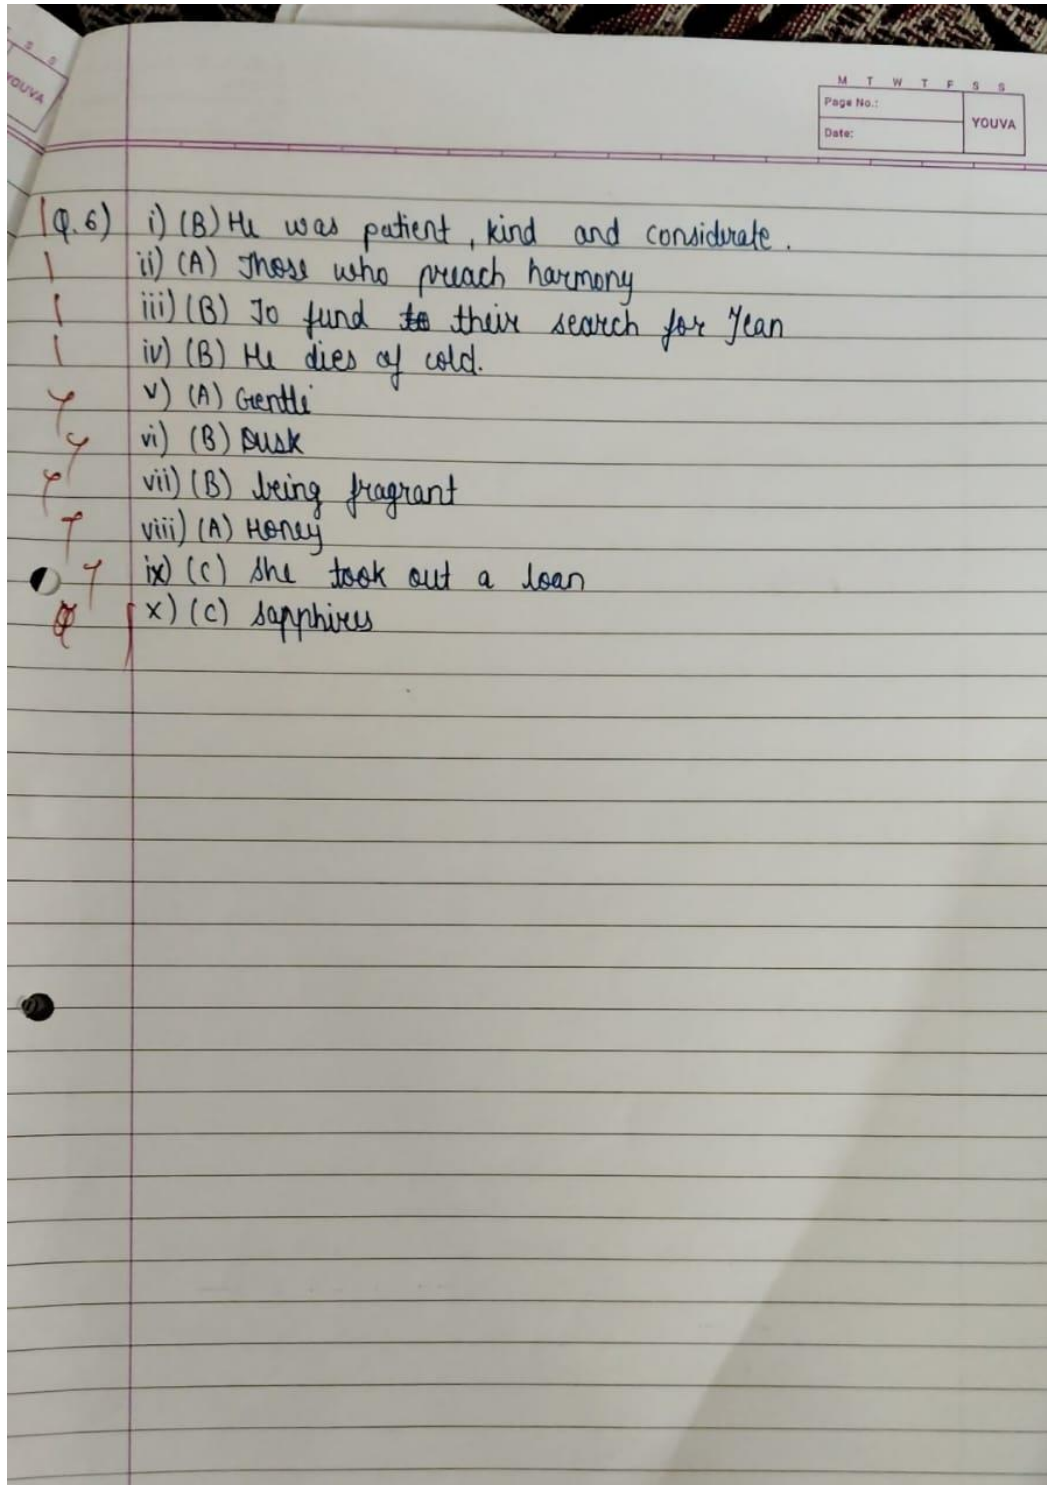 S S
YOUVA
M T W T F S S
Page No.:
YOUVA
Date:
Q.6) i) (B) He was patient, kind and considerate.
1 ii) (A) Those who preach harmony
1 iii) (B) To fund to their search for Jean
1 iv) (B) He dies of cold.
v) (A) Gentle
vi) (B) Dusk
vii) (B) being fragrant
viii) (A) Honey
ix) (C) she took out a loan
x) (C) sapphires